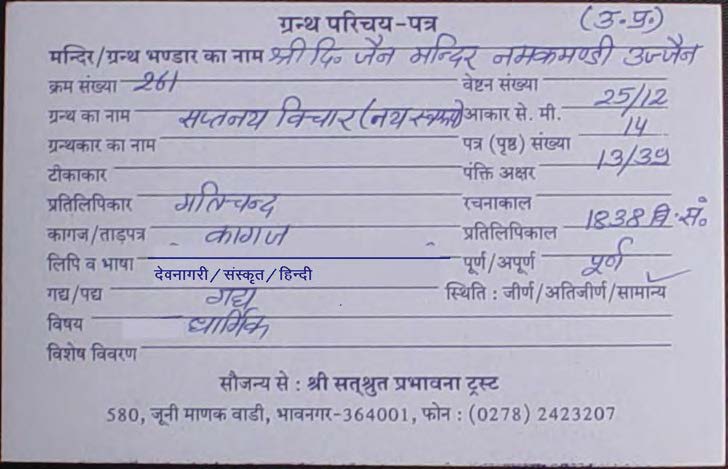 ग्रन्थ परिचय-पत्र (उ.प्र.)
मन्दिर/ग्रन्थ भण्डार का नाम श्री दि० जैन मन्दिर नमकमण्डी उज्जैन
क्रम संख्या 261 वेष्टन संख्या
ग्रन्थ का नाम सप्तनय विचार (नय स्वरूप) आकार से. मी. 25/12
ग्रन्थकार का नाम पत्र (पृष्ठ) संख्या 14
टीकाकार पंक्ति अक्षर 13/39
प्रतिलिपिकार रचनाकाल
कागज/ताड़पत्र कागज प्रतिलिपिकाल 1838 वि. सं०
लिपि व भाषा देवनागरी/संस्कृत/हिन्दी पूर्ण/अपूर्ण पूर्ण
गद्य/पद्य गद्य स्थिति : जीर्ण/अतिजीर्ण/सामान्य
विषय धार्मिक
विशेष विवरण
सौजन्य से : श्री सत्श्रुत प्रभावना ट्रस्ट
580, जूनी माणक वाडी, भावनगर-364001, फोन : (0278) 2423207